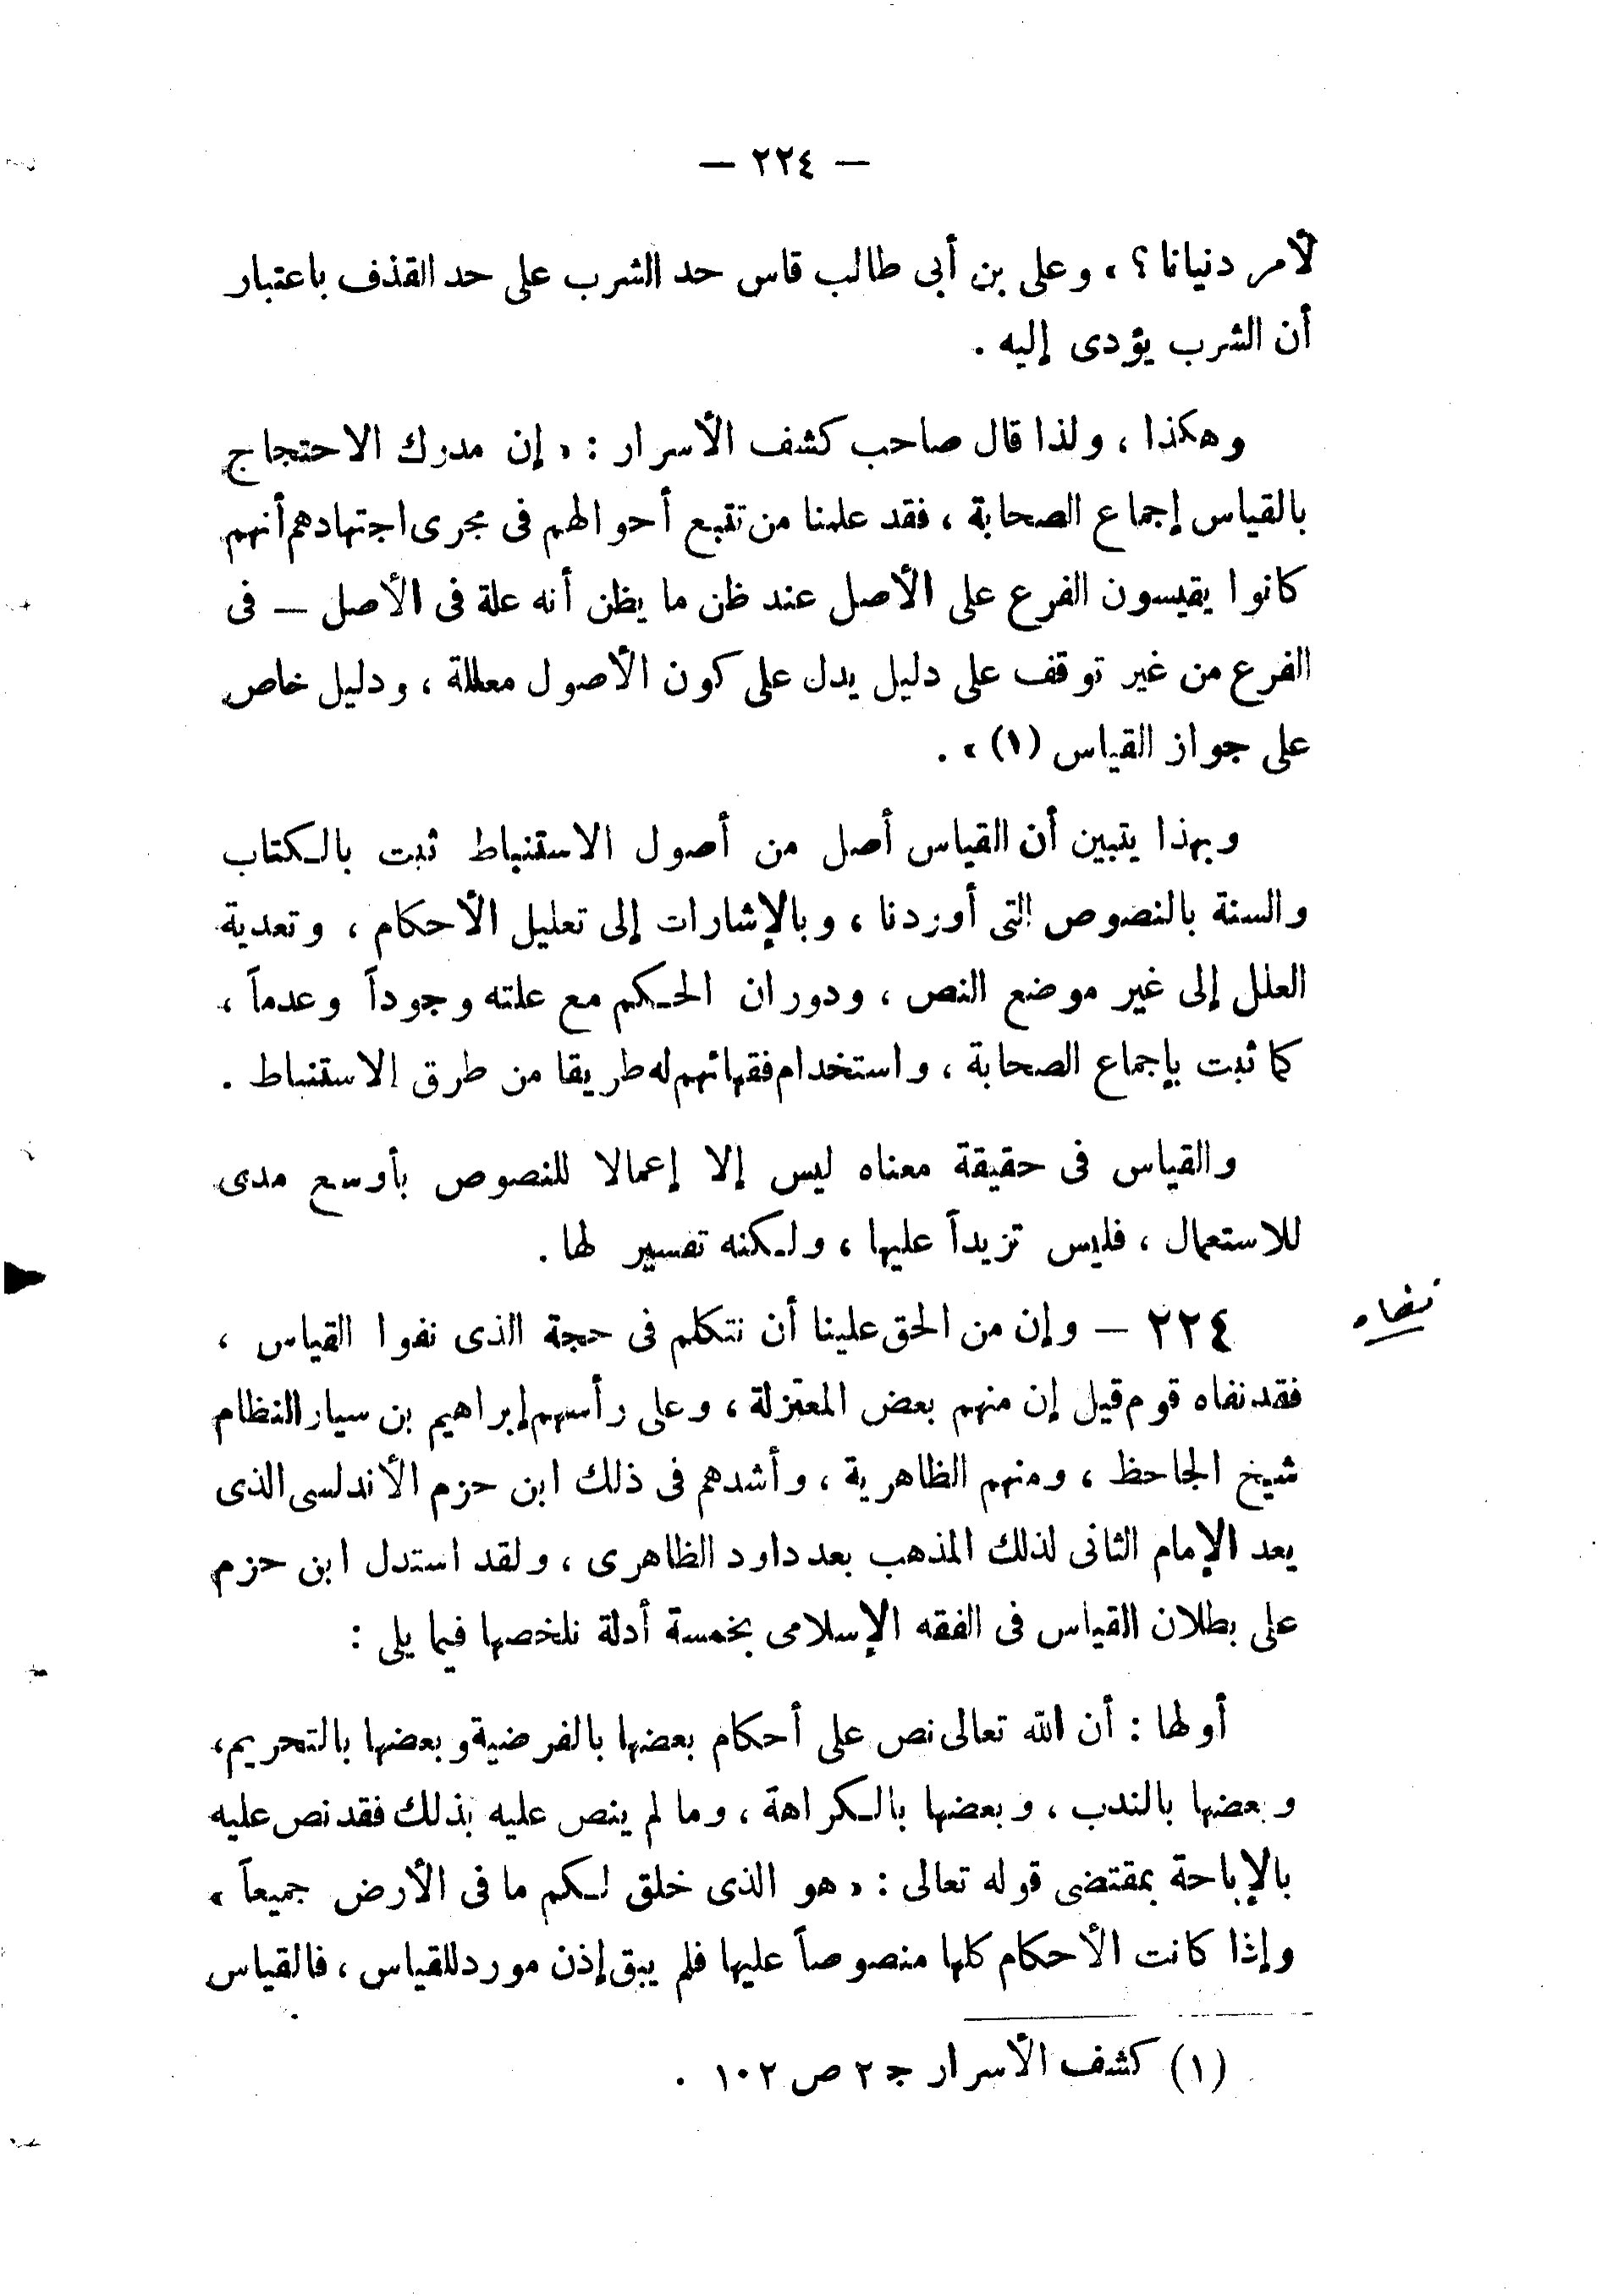 — ٢٢٤ —
لأمر دنيانا ؟ » وعلى بن أبى طالب قاس حد الشرب على حد القذف باعتبار
أن الشرب يؤدى إليه .
وهكذا ، ولذا قال صاحب كشف الأسرار : « إن مدرك الاحتجاج
بالقياس إجماع الصحابة ، فقد علمنا من تتبع أحوالهم فى مجرى اجتهادهم أنهم
كانوا يقيسون الفرع على الأصل عند ظن ما يظن أنه علة فى الأصل — فى
الفرع من غير توقف على دليل يدل على كون الأصول معللة ، ودليل خاص
على جواز القياس (١) » .
وبهذا يتبين أن القياس أصل من أصول الاستنباط ثبت بالكتاب
والسنة بالنصوص التى أوردنا ، وبالإشارات إلى تعليل الأحكام ، وتعدية
العلل إلى غير موضع النص ، ودوران الحكم مع علته وجوداً وعدماً ،
كما ثبت بإجماع الصحابة ، واستخدام فقهائهم له طريقا من طرق الاستنباط .
والقياس فى حقيقة معناه ليس إلا إعمالا للنصوص بأوسع مدى
للاستعمال ، فليس تزيداً عليها ، ولكنه تفسير لها .
نفاه
٢٢٤ — وإن من الحق علينا أن نتكلم فى حجة الذى نفوا القياس ،
فقد نفاه قوم قيل إن منهم بعض المعتزلة ، وعلى رأسهم إبراهيم بن سيار النظام
شيخ الجاحظ ، ومنهم الظاهرية ، وأشدهم فى ذلك ابن حزم الأندلسى الذى
يعد الإمام الثانى لذلك المذهب بعد داود الظاهرى ، ولقد استدل ابن حزم
على بطلان القياس فى الفقه الإسلامى بخمسة أدلة نلخصها فيما يلى :
أولها : أن الله تعالى نص على أحكام بعضها بالفرضية وبعضها بالتحريم ،
وبعضها بالندب ، وبعضها بالكراهة ، وما لم ينص عليه بذلك فقد نص عليه
بالإباحة بمقتضى قوله تعالى : « هو الذى خلق لكم ما فى الأرض جميعاً »
وإذا كانت الأحكام كلها منصوصاً عليها فلم يبق إذن مورد للقياس ، فالقياس
(١) كشف الأسرار ج ٢ ص ١٠٢ .